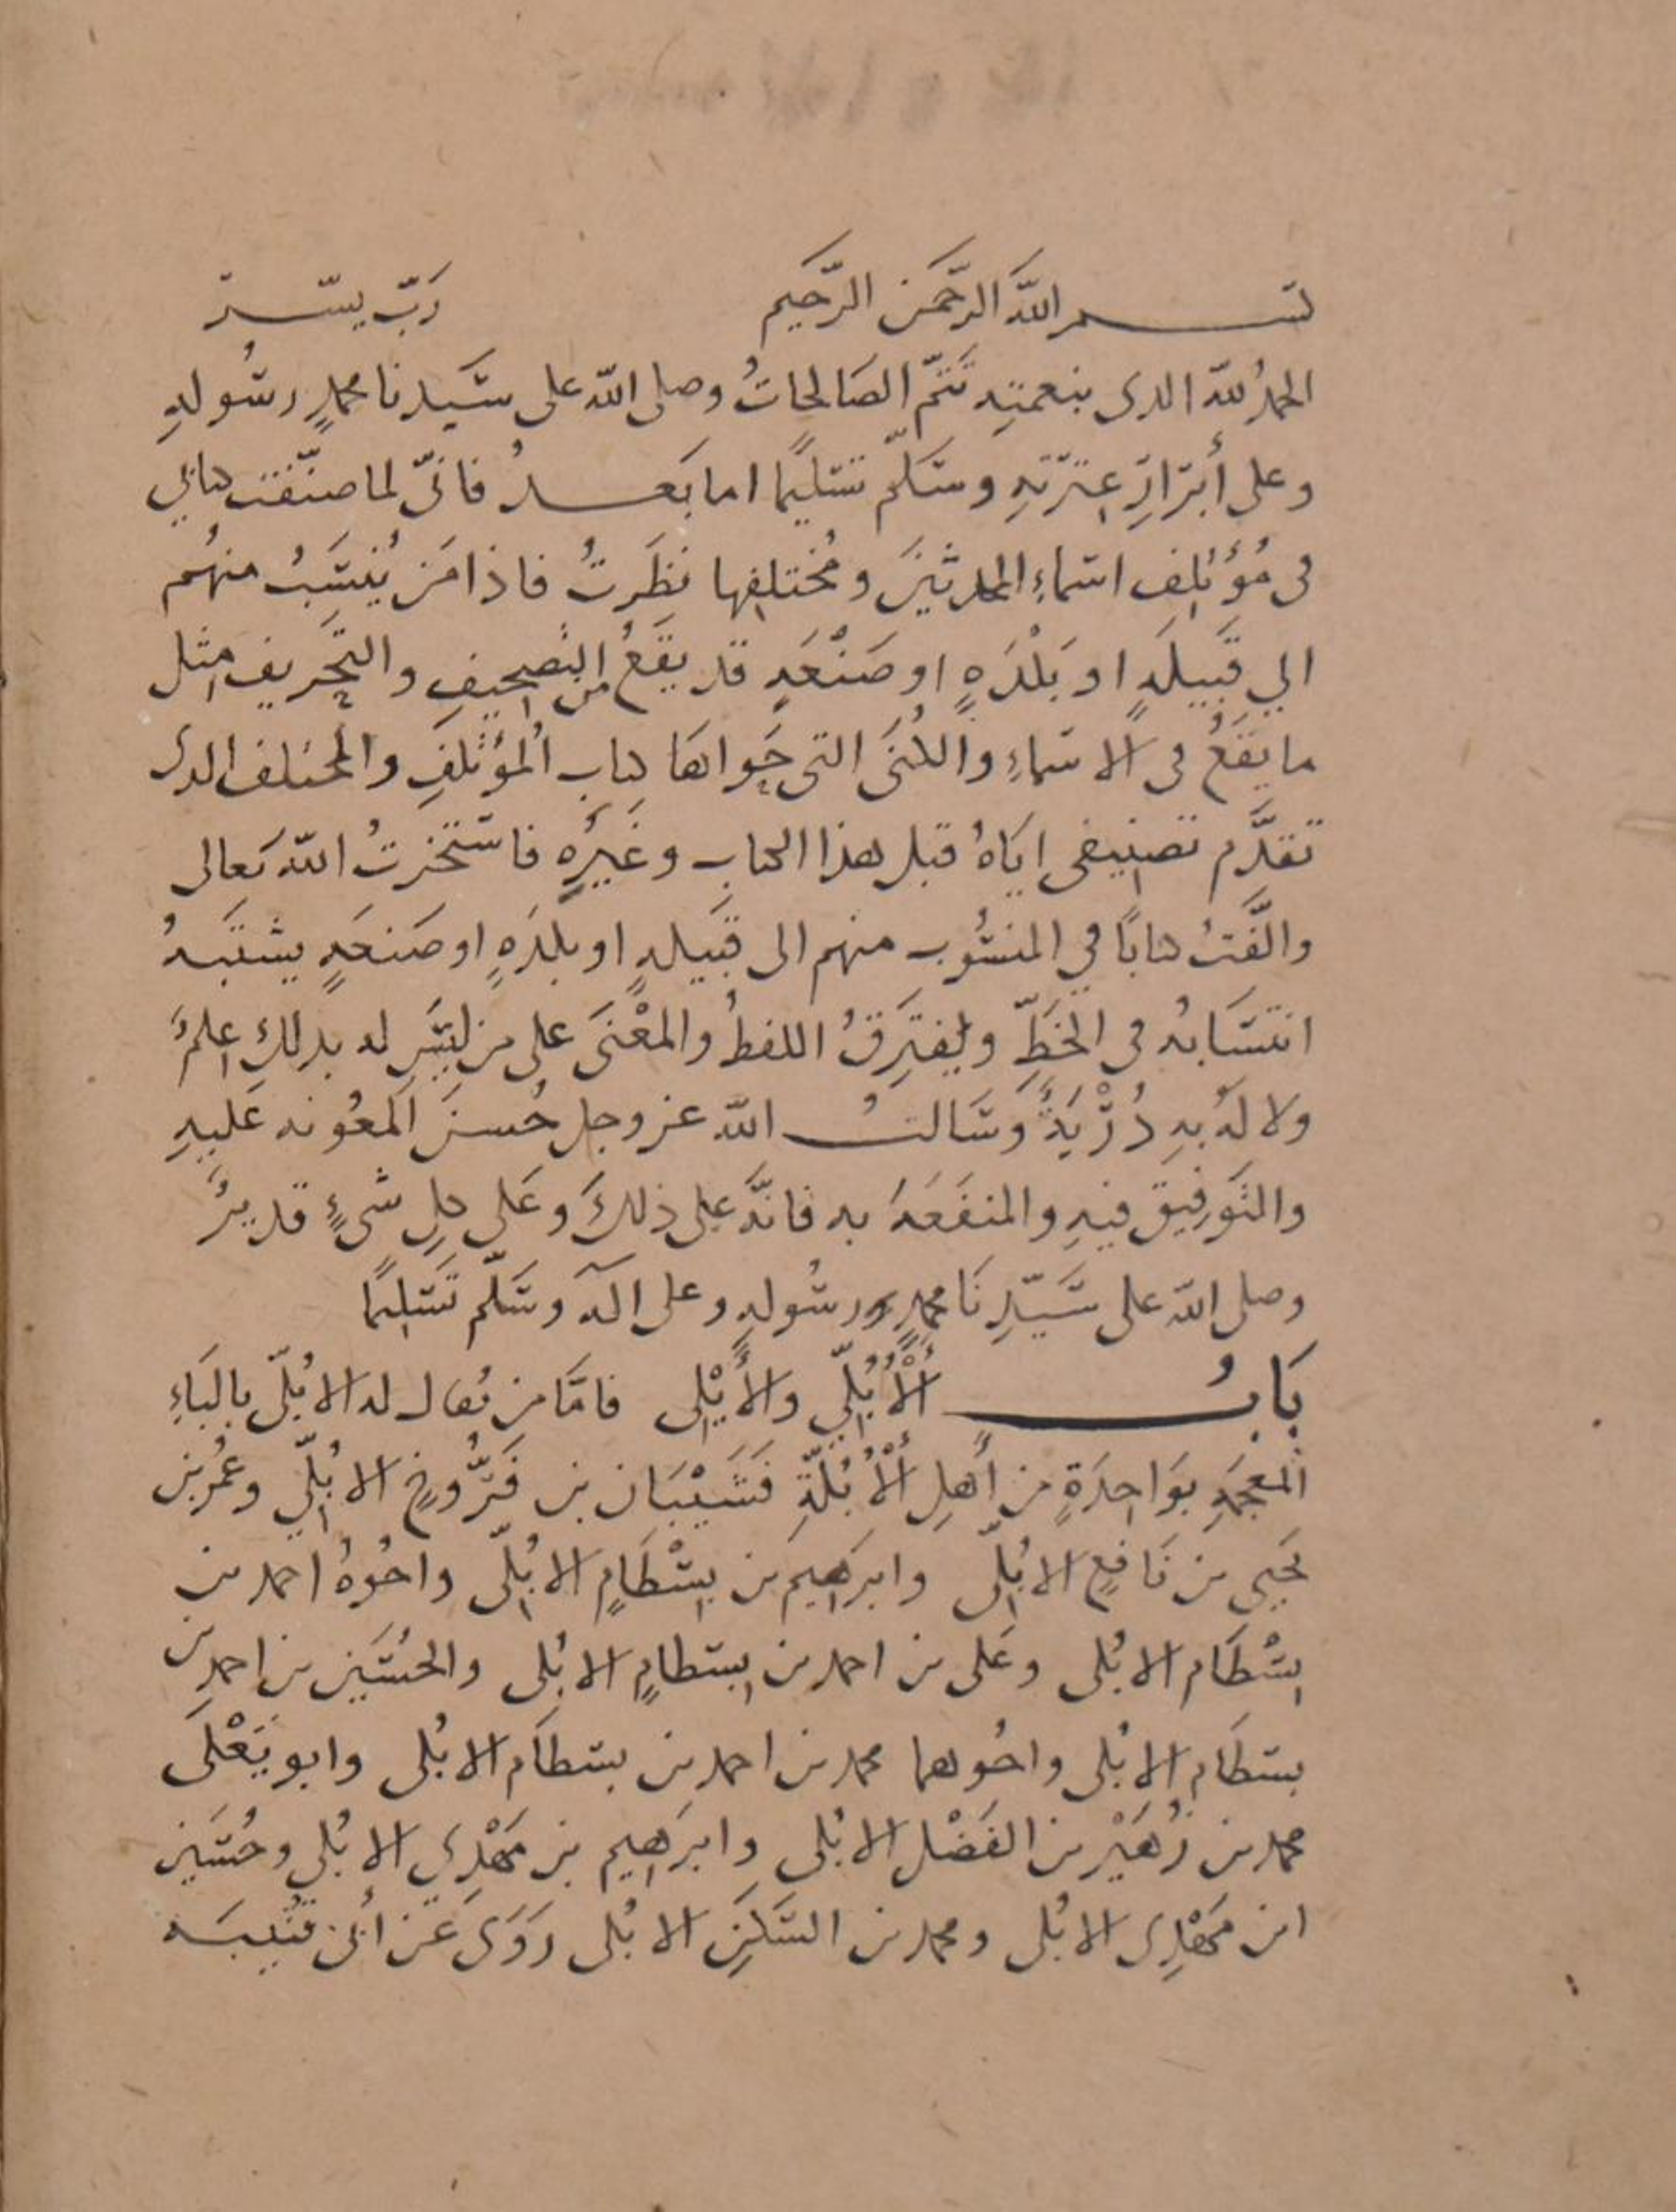 بسم الله الرَّحمَن الرَّحيم رَبّ يسّر
الحمدُ لله الذى بنعمتِه تَتمّ الصَالحاتُ وصلى الله على سَيدنا محمدٍ رسُولهِ
وعلى أَبرَارِ عِترَتهِ وسَلّم تسليمًا اما بَعدُ فانىّ لما صنّفت كتابي
فى مُؤتلِف اسماءِ المحدثينَ ومُختلِفِها نظَرتُ فاذا مَن يُنسَبُ منهُم
الي قَبِيلَهٍ او بَلْدَهٍ او صَنْعَهٍ قد يقَعُ من التصحِيفِ والتحَريف مِثل
ما يقَعُ فى الاسَماءِ والكُنَى التى حَواهَا كتاب المُؤتَلفِ والمُختلف الذى
تقدَّم تصنِيفى ايَاهُ قبل هذا الكتاب وغَيرُه فاستَخرتُ الله تَعالى
والَّفتُ كتابًا في المنسُوب منهم الى قَبيلهٍ او بلدَهٍ او صَنعَهٍ يشتَبهُ
انتسَابُه فى الخَطِّ ويفتَرِقُ اللفظُ والمعْنَى على من ليسَ له بذلكِ علمٌ
ولا لَهُ بهِ دُرْبَةٌ وسَالتُ الله عز وجل حُسنَ المعُونه عَليهِ
والتَوفِيق فيهِ والمنفَعَهَ به فانَّه على ذلكَ وعَلى كلِ شىءٍ قديرٌ
وصلى الله على سَيّدِنَا محمدٍ رسُولهِ وعلى آله وسَلّم تَسليمًا
بَابُ الأُبُلِّي والأَيْلِى فامَّا من يُقال له الابُلّى بالبَاءِ
المعجمَهِ بوَاحِدَةٍ من أَهلِ الأُبُلَّةِ فَشَيْبَان بن فَرُّوخٍ الابُلِّي وعُمر بن
يَحيى بن نَافِعٍ الابُلِّى وابرَهيم بن بِسْطَامٍ الابُلِّى واخُوهُ احمد بن
بِسْطَام الابُلى وعَلى بن احمد بن بِسطامٍ الابُلى والحُسَين بن احمد بن
بسطَام الابُلى واخُوهما محمد بن احمد بن بسطَام الابُلى وابو يَعْلَى
محمد بن زُهَيْر بن الفَضْل الابُلى وابرَهيم بن مَهْدِي الابُلي وحُسَين
ابن مَهْدِى الابُلى ومحمد بن السَكَنِ الابُلى رَوَى عَن أبى قتَيبَه